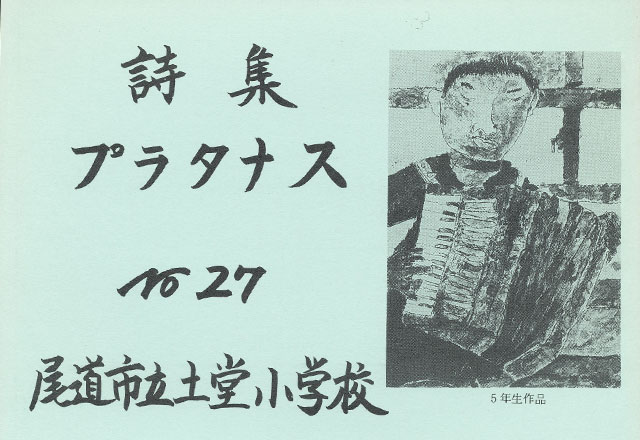 詩集
プラタナス
no 27
尾道市立土堂小学校
5年生作品